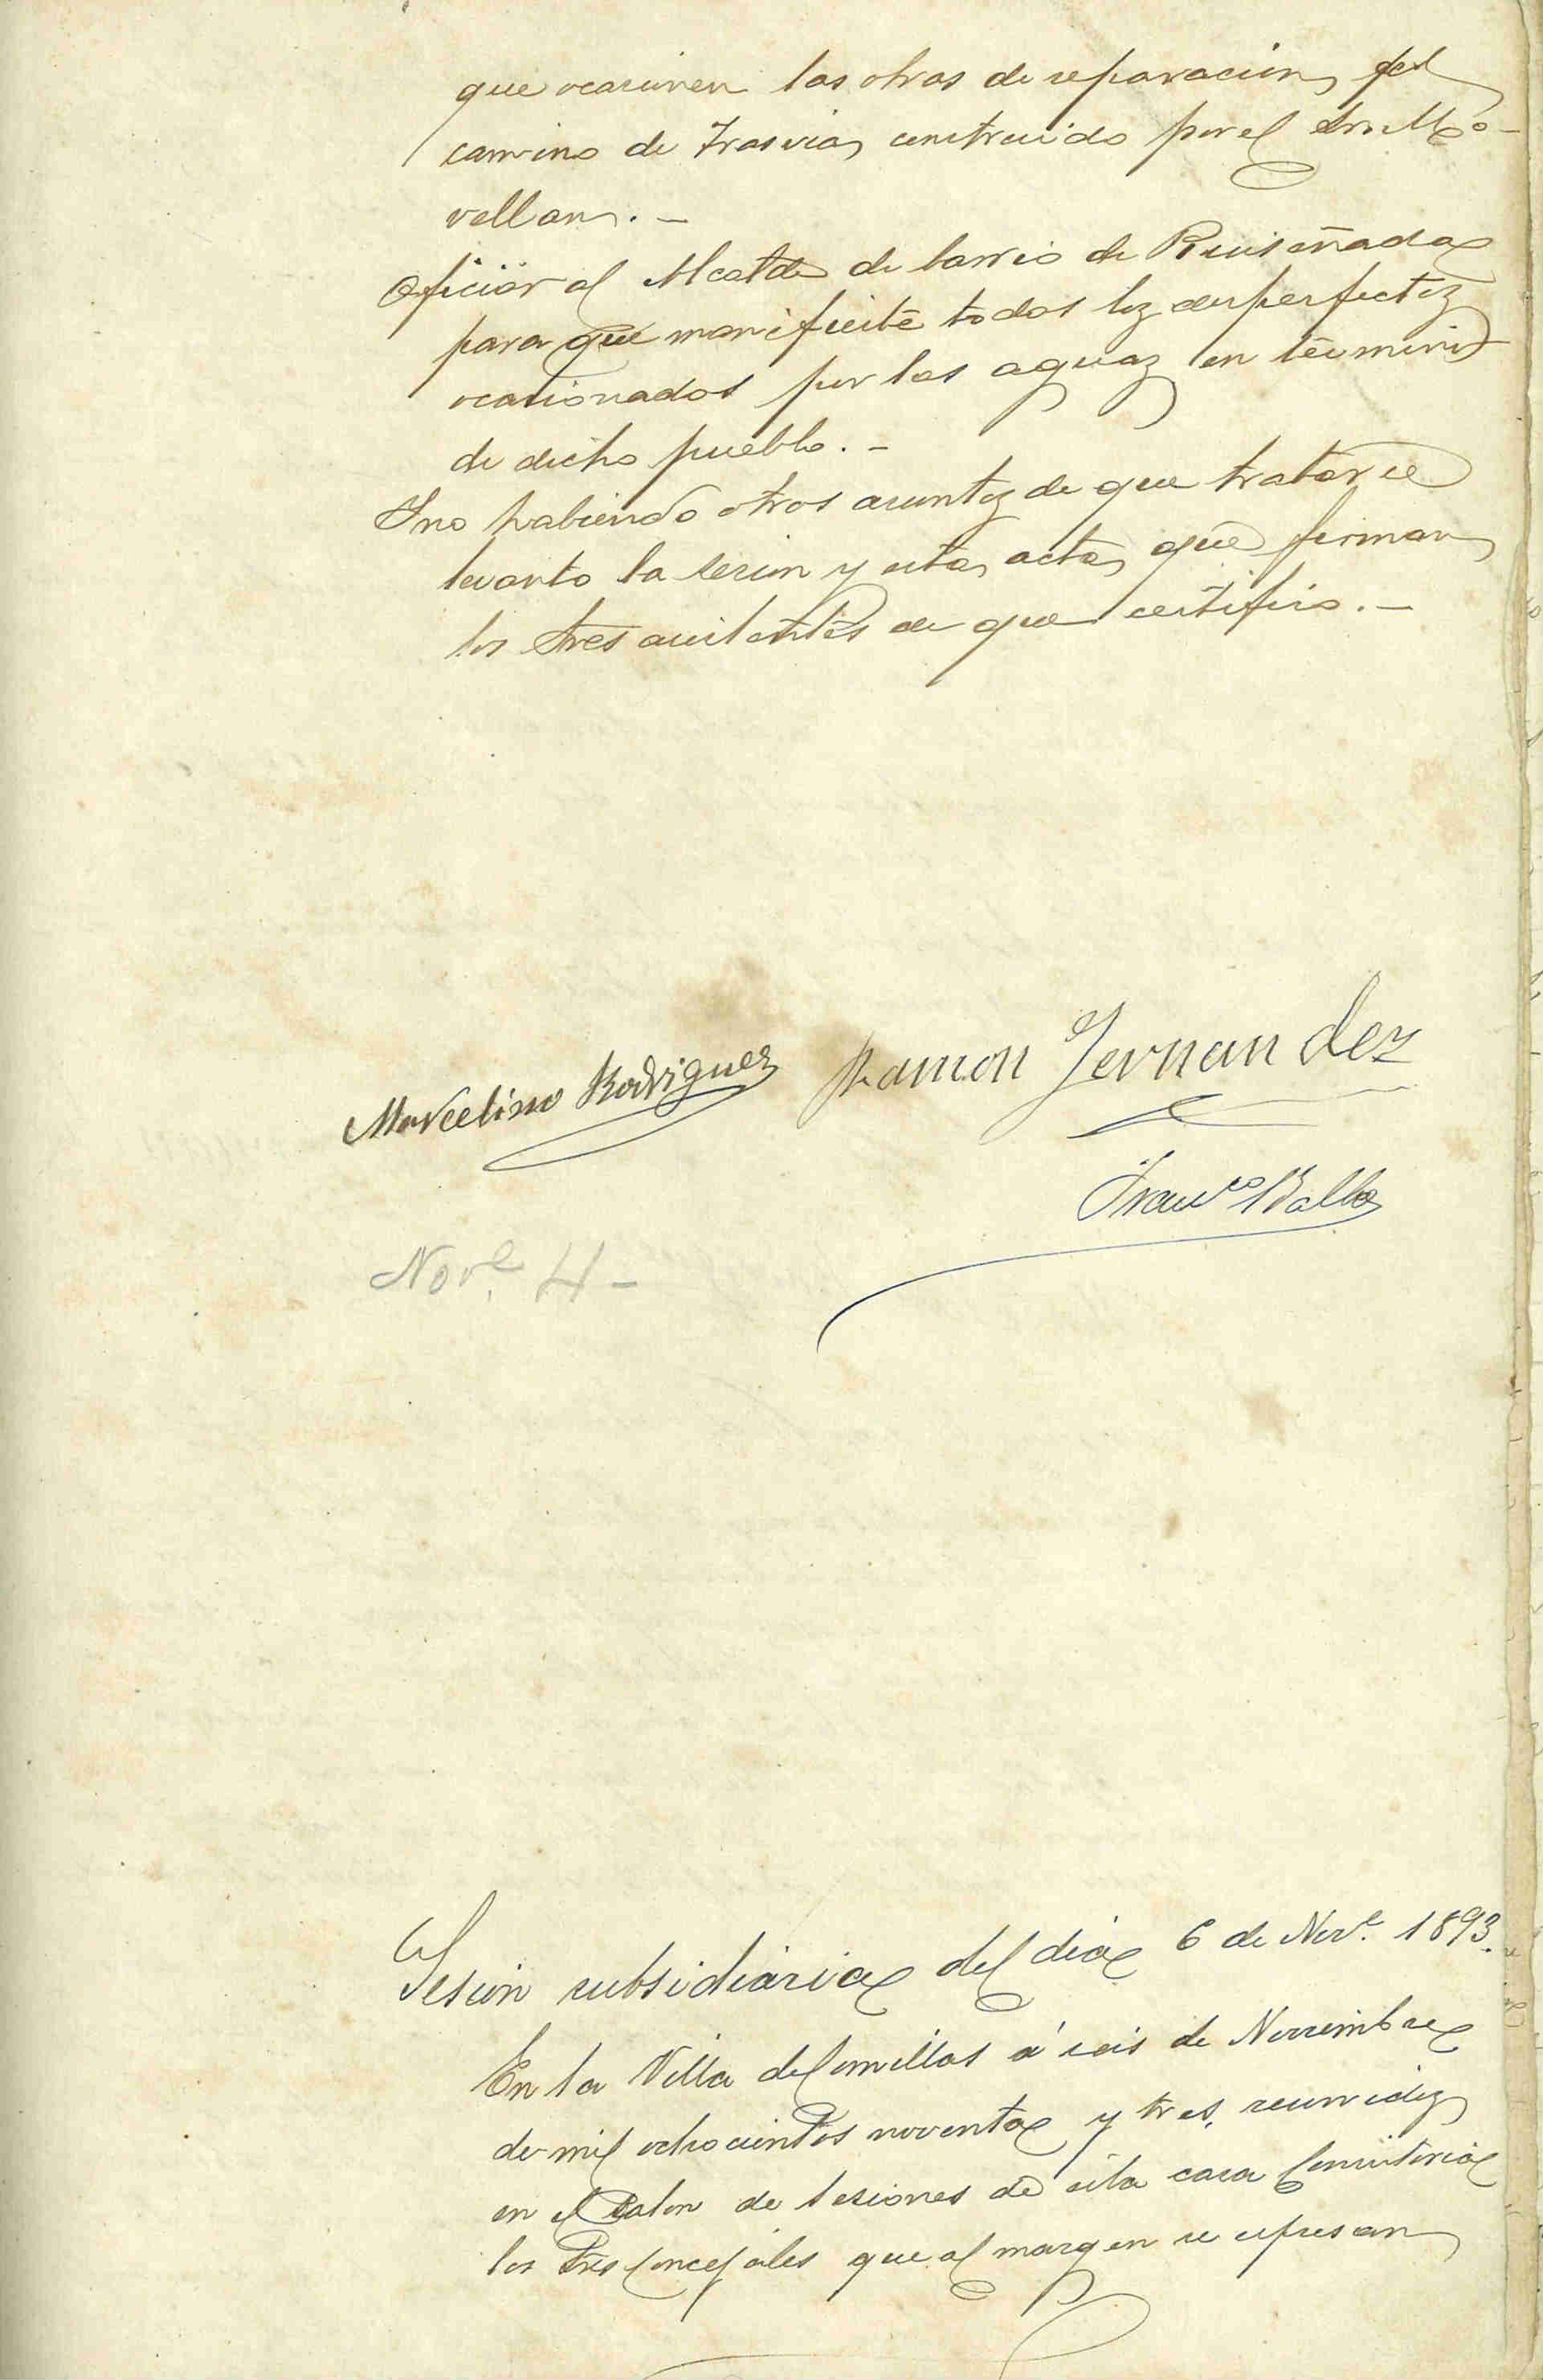 que ocasionen las obras de reparacion del
camino de Trasvia, construido por el Sr. Mo-
vellan. -
Oficiar al Alcalde de barrio de Ruiseñada
para que manifieste todos los desperfectos
ocasionados por las aguas en término
de dicho pueblo. -
Y no habiendo otros asuntos de que tratar se
levanto la sesion y esta acta, que firman
los Sres asistentes de que certifico. -
Marcelino Rodriguez
Ramon Fernandez
Franco Balbas
Nove. 4 -
Sesion subsidiaria del dia 6 de Nove. 1893.
En la Villa de Comillas á seis de Noviembre
de mil ochocientos noventa y tres, reunidos
en el Salon de sesiones de esta casa Consistorial
los Sres Concejales que al margen se espresan